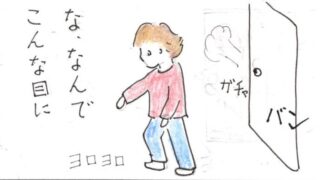 な、なんで
こんな目に
ガチャ
バン
ヨロヨロ